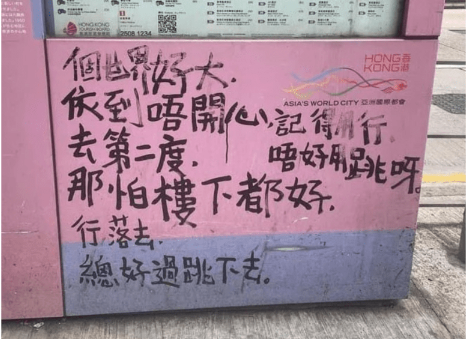 2508 1234
HONG KONG 香港
ASIA'S WORLD CITY 亞洲國際都會
個世界好大.
依到唔開心,記得用行.
去第二度, 唔好用跳呀。
那怕樓下都好.
行落去.
總好過跳下去。